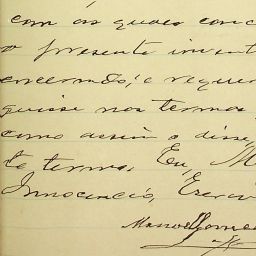 com os quaes conc
o presente invent
encerrado; e requer
guisse nos termos
como assim o disse,
te termo. Eu, M
Innocencio, Escriv
Manoel Gomes